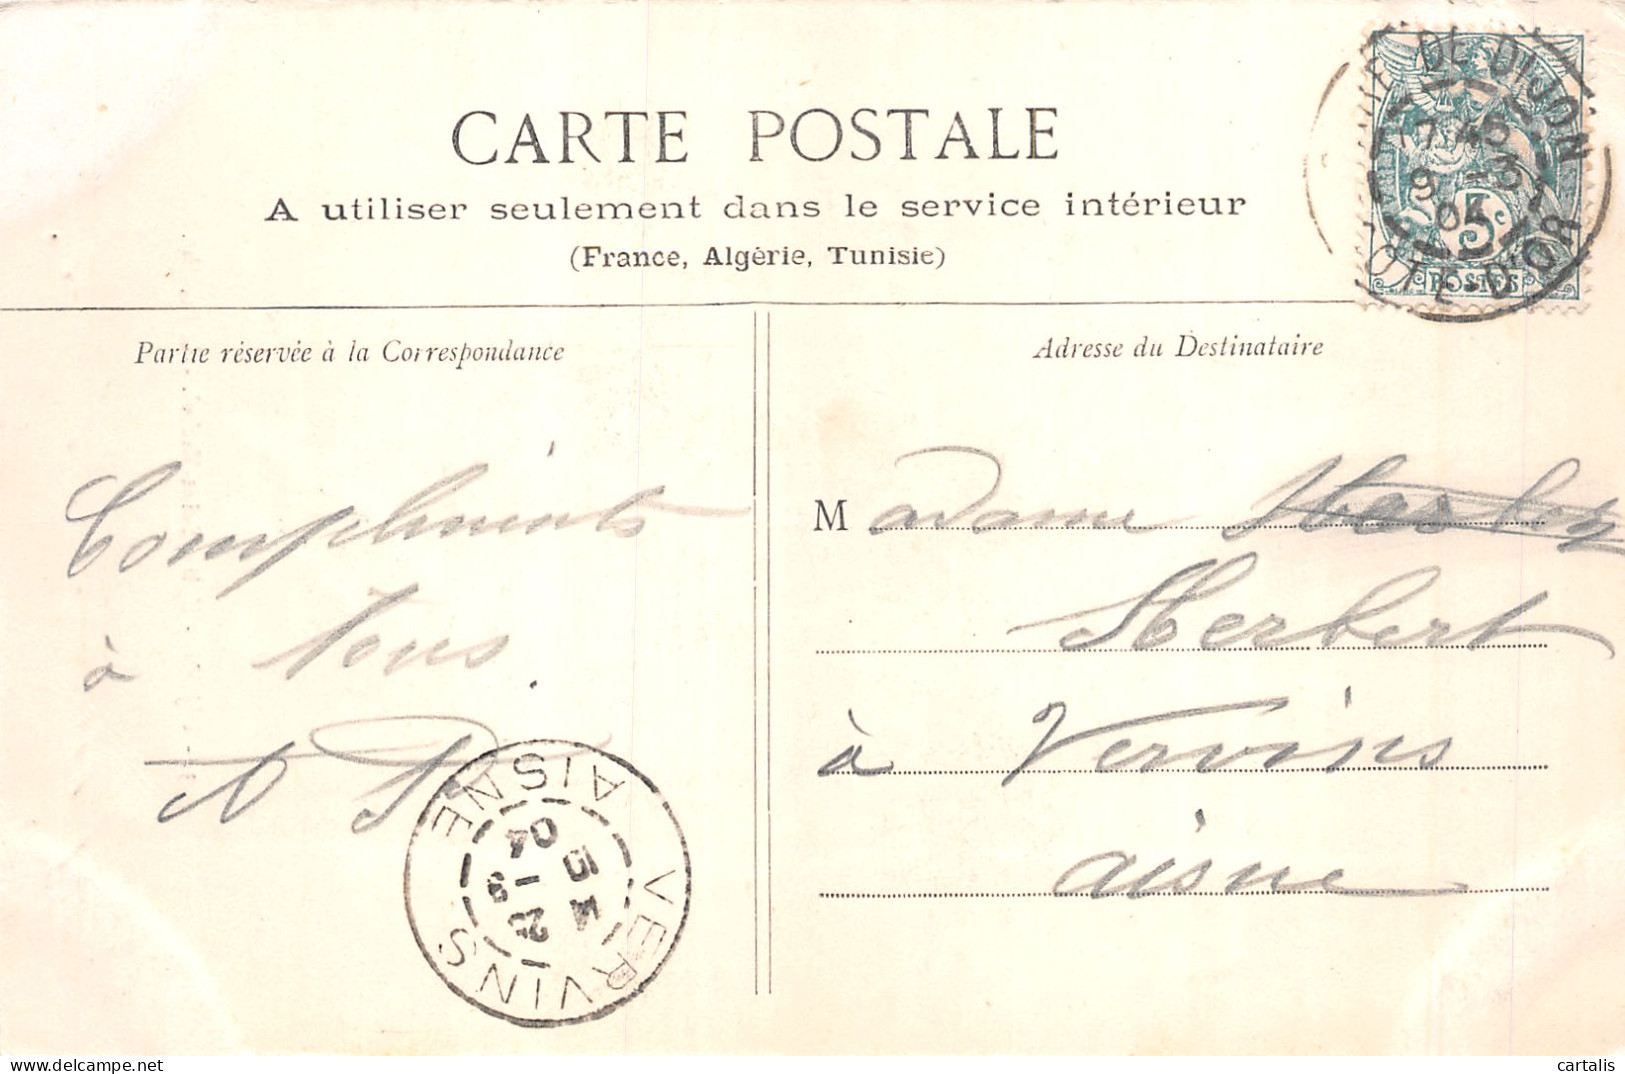 CARTE POSTALE
A utiliser seulement dans le service intérieur
(France, Algérie, Tunisie)
DE DIJON
COTE-D'OR
7 45
9 -3
04
5c
POSTES
Partie réservée à la Correspondance
Adresse du Destinataire
Compliments
à tous
M adame
Herbert
à Vervins
aisne
VERVINS
AISNE
04
cartalis